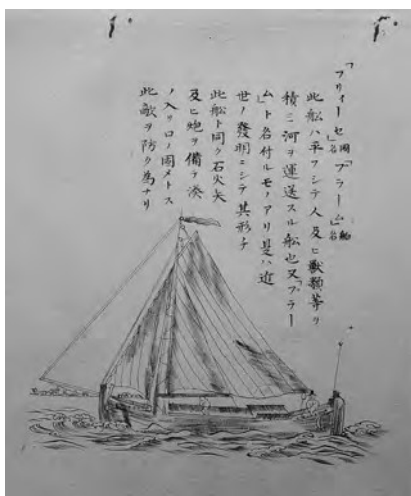 「フリィーセ」國名「プラーム」船名
此船ハ平フシテ人及ヒ獸類等ヲ
積ミ河ヲ運送スル船也又「プラー
ム」ト名付ルモノアリ是ハ近
世ノ發明ニシテ其形チ
此船ト同ク石火矢
及ヒ炮ヲ備テ湊
ノ入リ口ノ固メトス
此敵ヲ防ク為ナリ